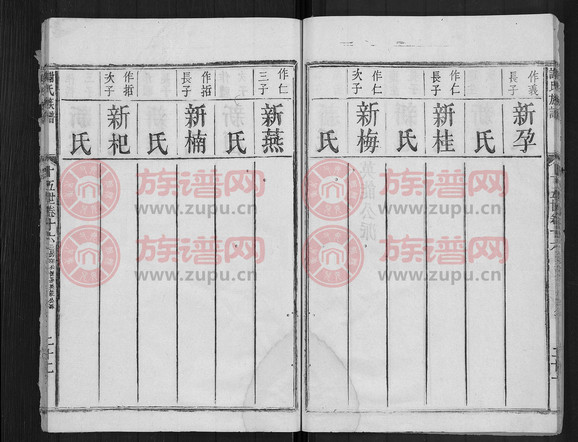 作義
長子
新孕
氏
作仁
長子
新桂
氏
作仁
次子
新梅
氏
作仁
三子
新燕
氏
作䄎
長子
新楠
氏
次子
新杞
氏
氏族譜
十五世卷十六
二十二
族谱网
www.zupu.cn
族谱网
www.zupu.cn
族谱网
www.zupu.cn
族谱网
www.zupu.cn